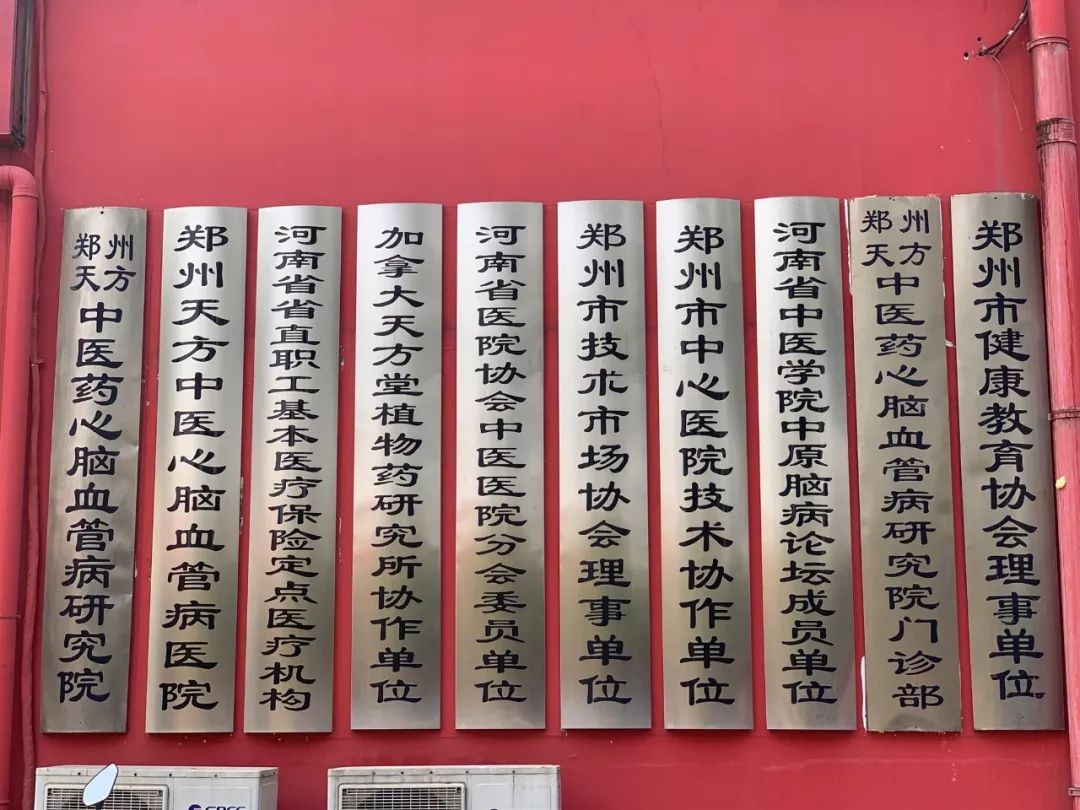 郑州天方中医药心脑血管病研究院
郑州天方中医心脑血管病医院
河南省省直职工基本医疗保险定点医疗机构
加拿大天方堂植物药研究所协作单位
河南省医院协会中医医院分会委员单位
郑州市技术市场协会理事单位
郑州市中心医院技术协作单位
河南省中医学院中原脑病论坛成员单位
郑州天方中医药心脑血管病研究院门诊部
郑州市健康教育协会理事单位
GREE